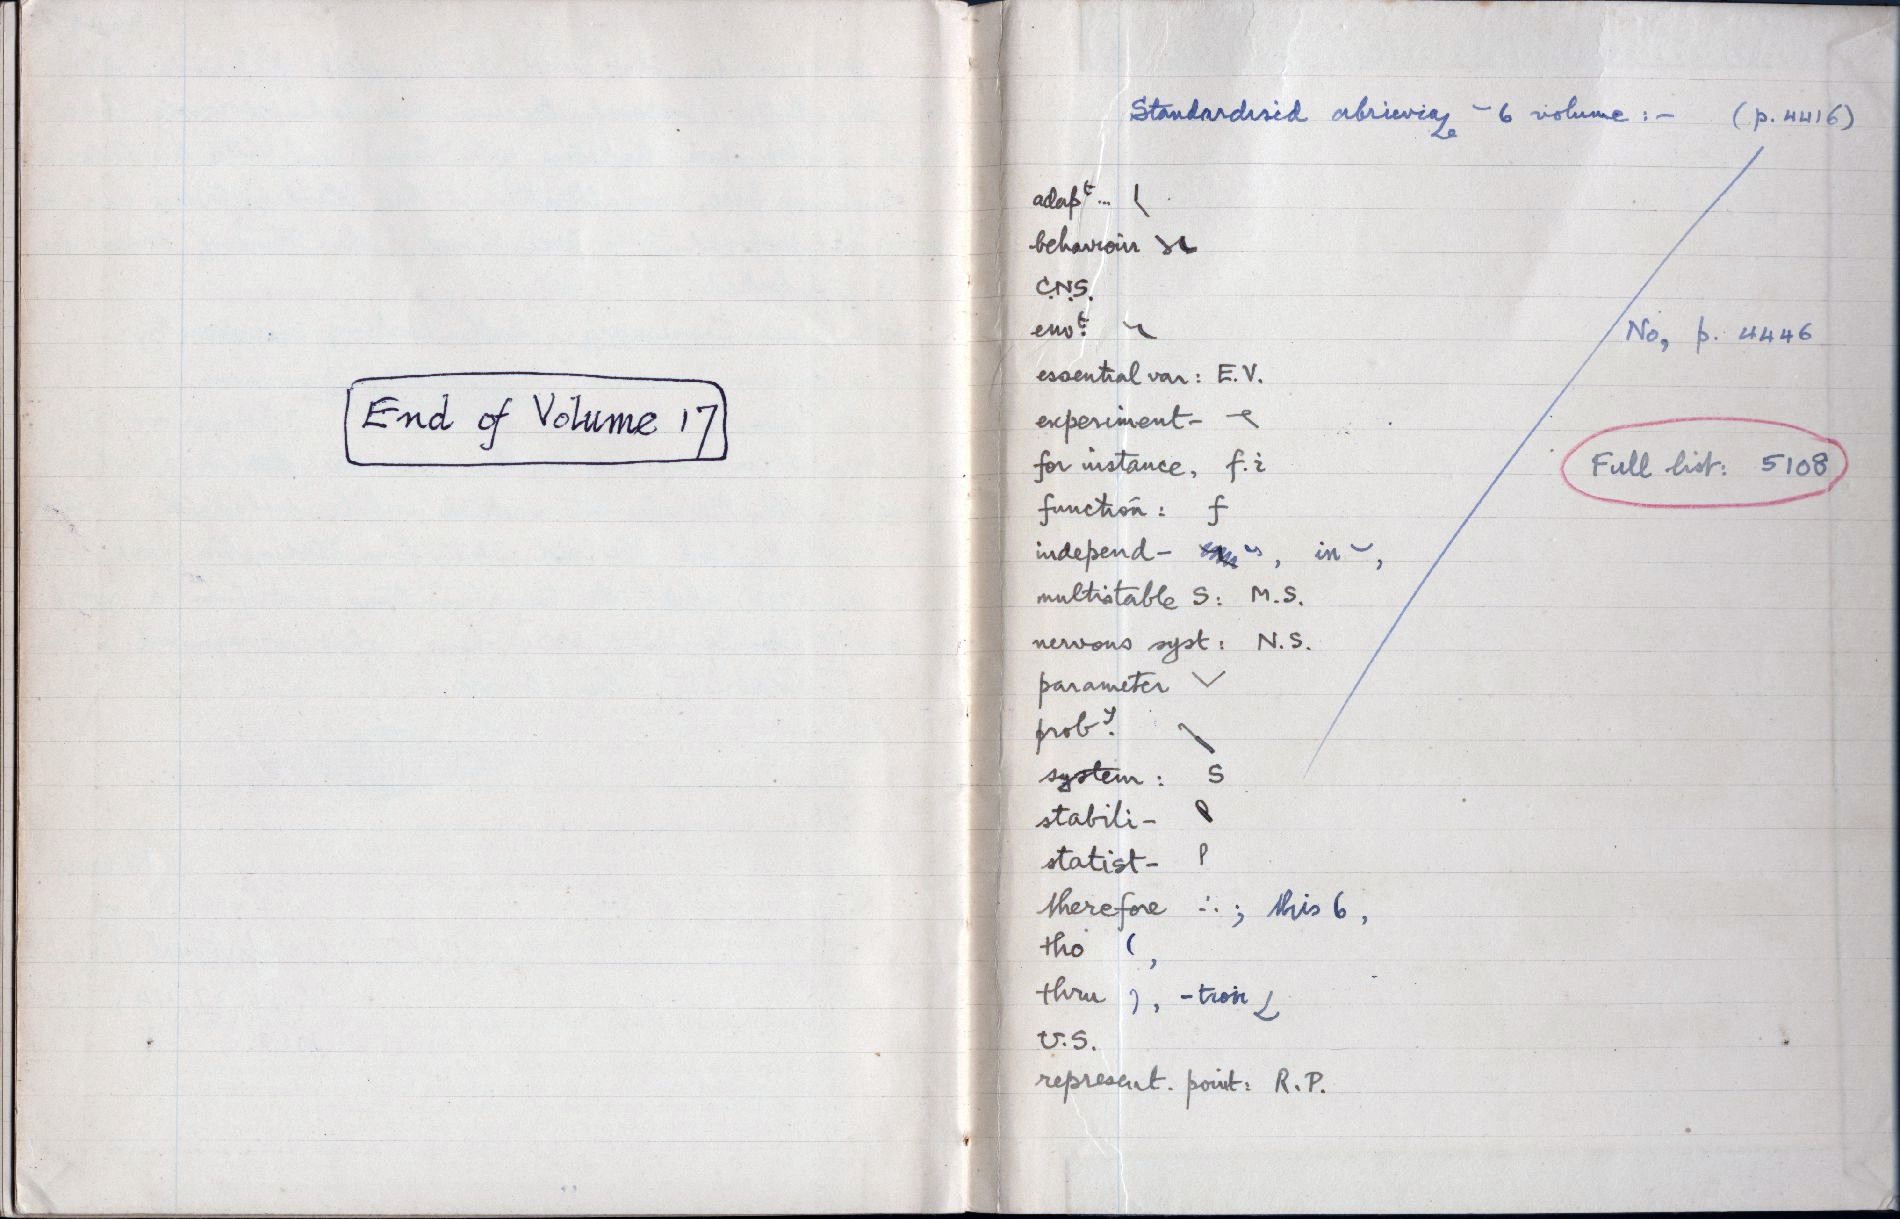 End of Volume 17
Standardised abrievia 6 volume :- (p. 4416)
adapt ...
behaviour
C.N.S.
envt.
No, p. 4446
essential var : E.V.
experiment-
Full list: 5108
for instance, f.i
function : f
independ- , in ,
multistable S : M.S.
nervous syst : N.S.
parameter
proby.
system : S
stabili-
statist-
therefore ∴ ; this 6 ,
tho ( ,
thru ) , -tron
U.S.
represent. point : R.P.